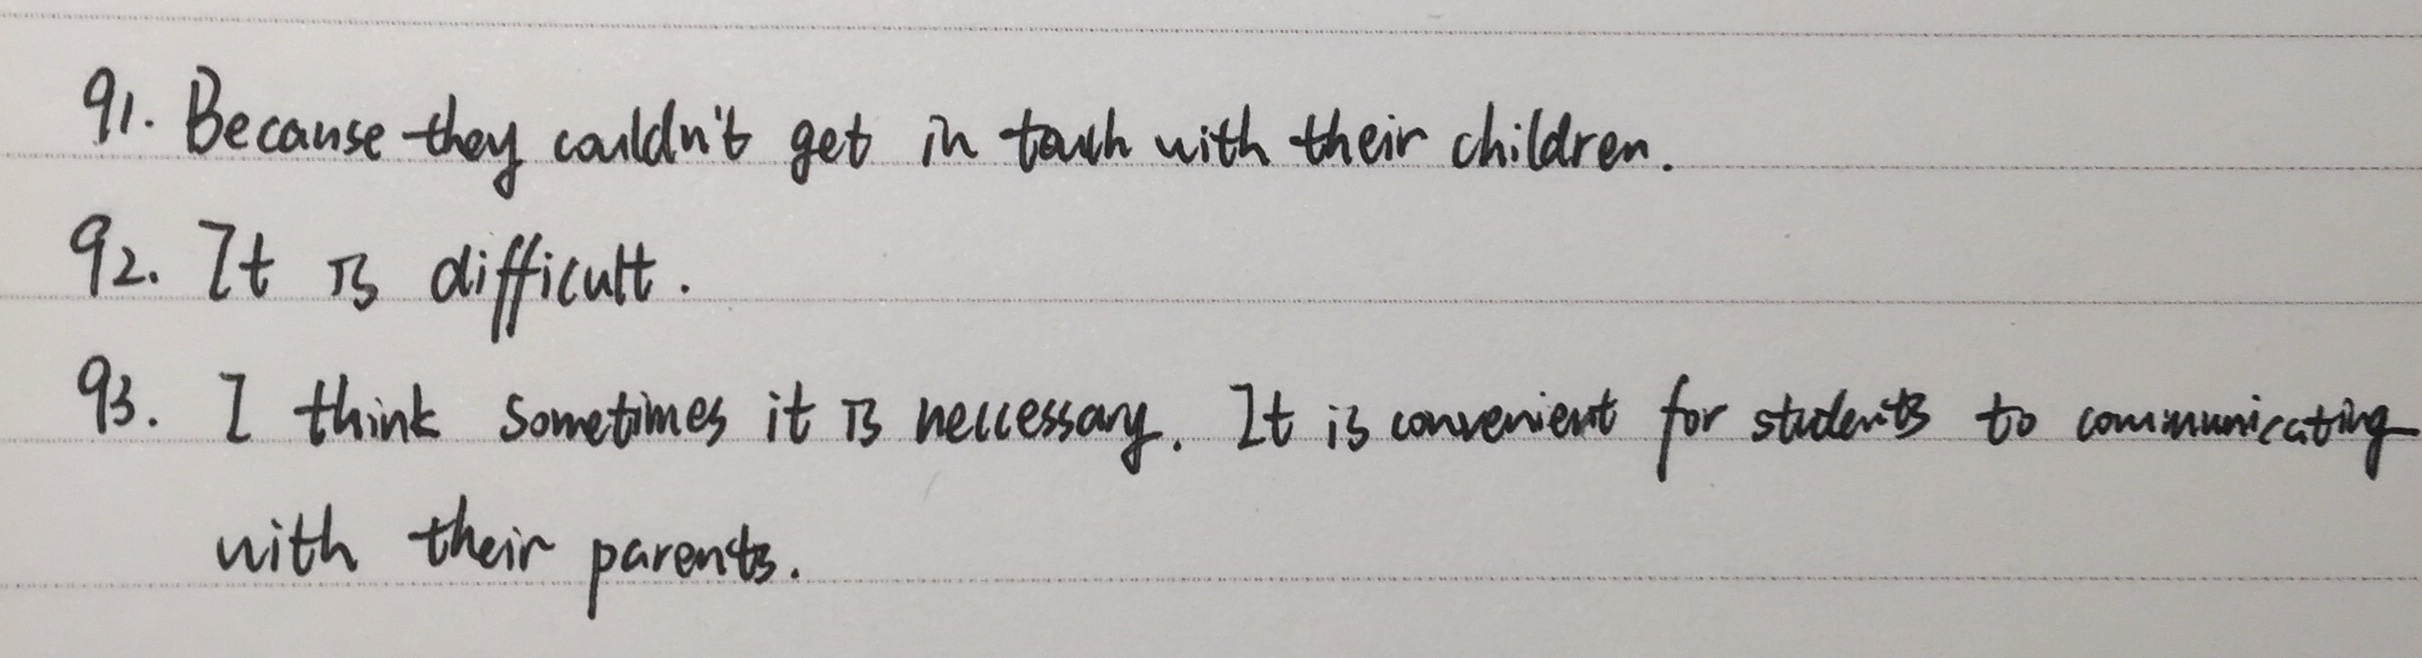 91. Because they couldn't get in touch with their children.
92. It is difficult.
93. I think sometimes it is neccessary. It is convenient for students to communicating
with their parents.